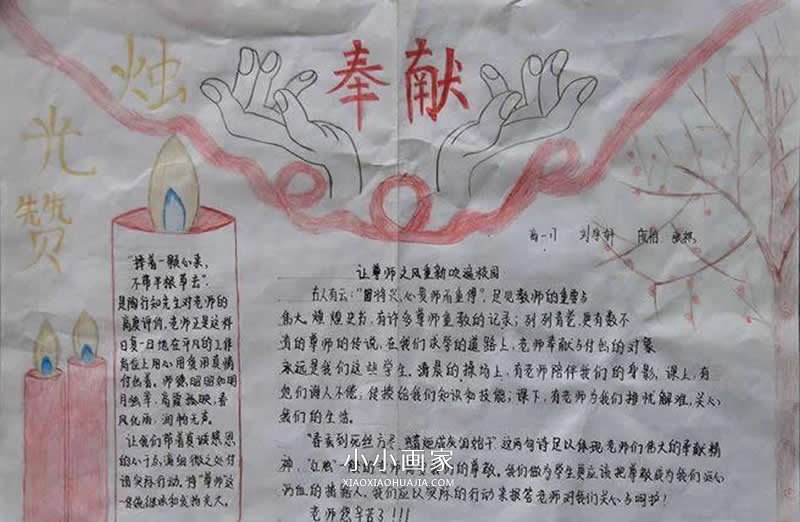 烛
光
赞
奉献
让尊师之风重新吹遍校园
"捧着一颗心来，
不带半根草去"
是陶行知先生对老师的
高度评价，老师正是这样
日复一日地在平凡的工作
岗位上用心用真情
付出着，师德昭昭如明
月
风化雨，润物无声。
让我们带着真诚感恩
的心于点滴细微之处付
诸实际行动，将"尊师这
古人有云："国将兴，心贵师而重傅"，足见教师的重要与
伟大。煌煌史书，有许多尊师重教的记录；列列青苍，更有数不
清的尊师的传说，在我们求学的道路上，老师奉献与付出的对象
永远是我们这些学生。清晨的操场上，有老师陪伴我们的身影，课上，有
他们诲人不倦，传授给我们知识和技能；课下，有老师为我们排忧解难，关心
我们的生活。
"春蚕到死丝方尽，蜡炬成灰泪始干"这两句诗足以体现老师们伟大的奉献精
神，我们做为学生更应该把尊敬成为我们
我们应以实际的行动来报答老师对我们关心与呵护！
老师您辛苦了！！！
小小画家
XIAOXIAOHUAJIA.COM